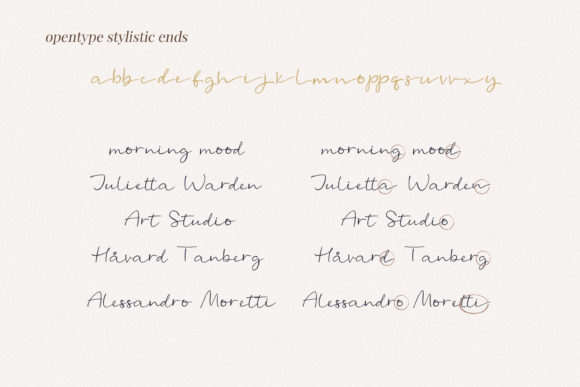 opentype stylistic ends
abbcdefghijklmnoppqsuvvxy
morning mood
Julietta Warden
Art Studio
Håvard Tanberg
Alessandro Moretti
morning mood
Julietta Warden
Art Studio
Håvard Tanberg
Alessandro Moretti